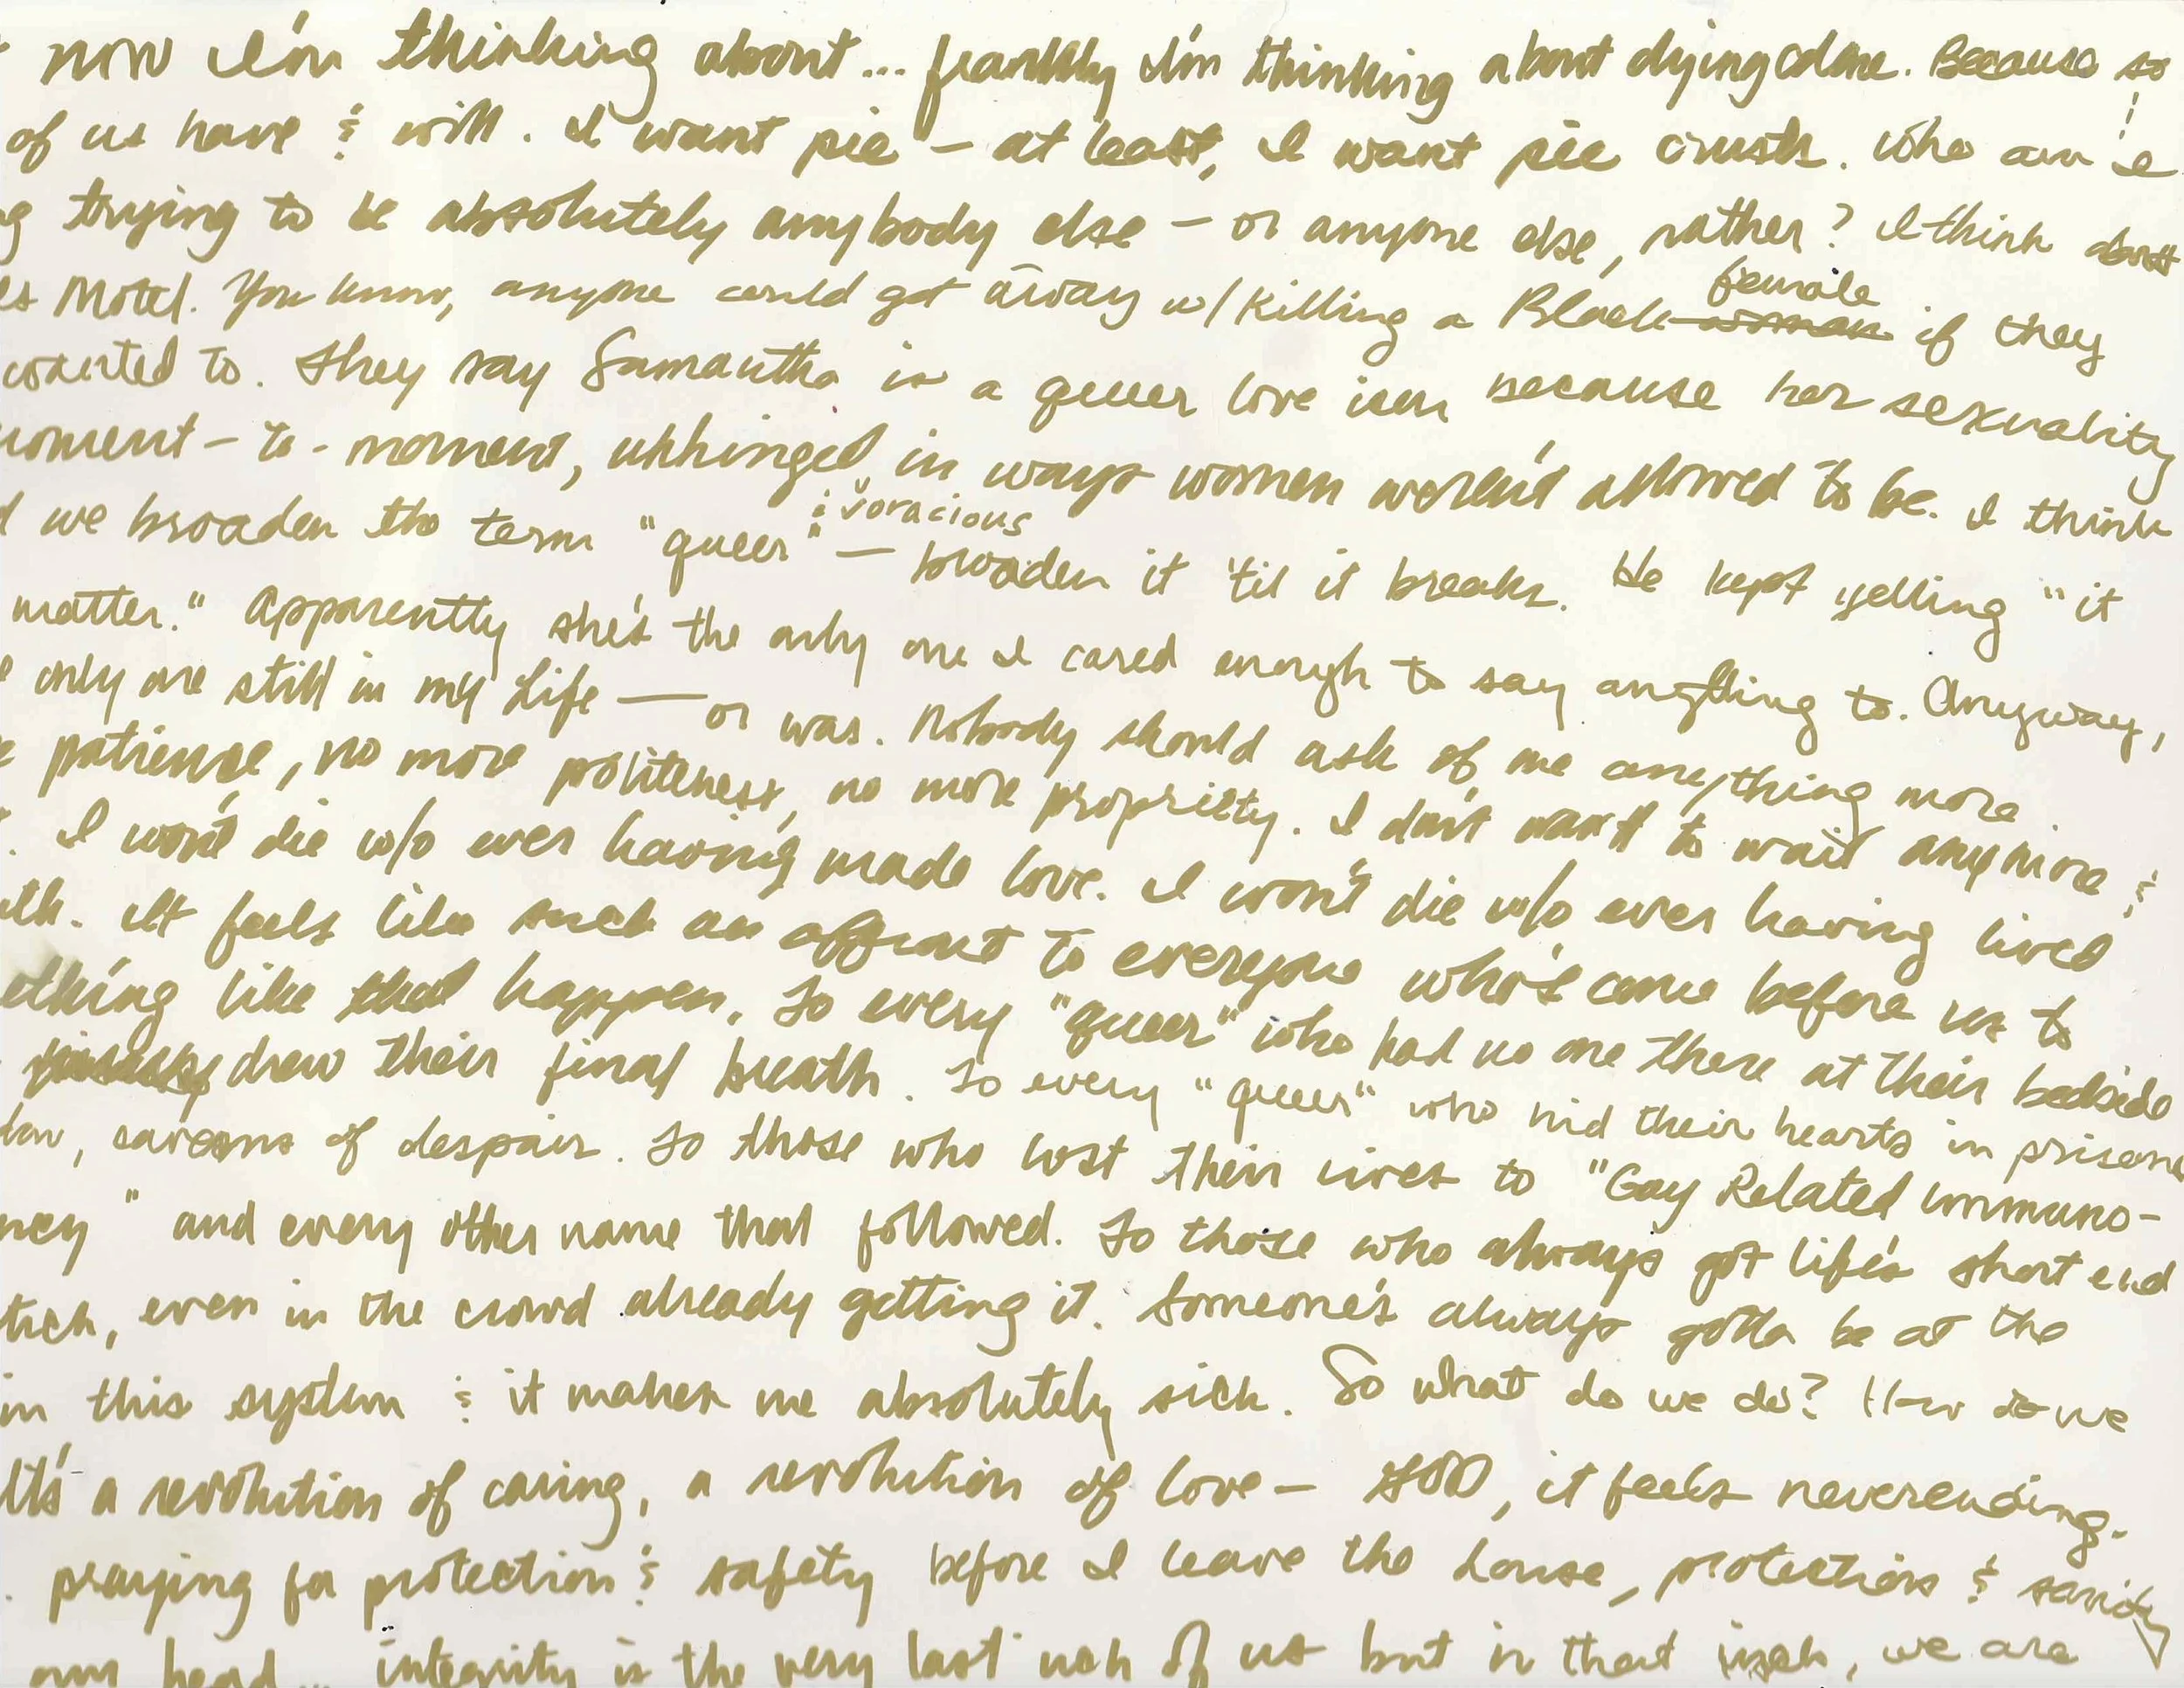 now I'm thinking about... frankly I'm thinking about dying alone. Because so
of us have & will. I want pie – at least, I want pie crusts. Who am I
trying to be absolutely anybody else – or anyone else, rather? I think about
Motel. You know, anyone could get away w/ killing a Black woman female if they
wanted to. They say Samantha is a queer love icon because her sexuality
moment-to-moment, unhinged in ways women weren't allowed to be. I think
& voracious
we broaden the term "queer" — broaden it 'til it breaks. He kept yelling "it
matter." Apparently she's the only one I cared enough to say anything to. Anyway,
only one still in my Life — or was. Nobody should ask of me anything more.
patience, no more politeness, no more propriety. I don't want to wait anymore &
I won't die w/o ever having made love. I won't die w/o ever having lived
It feels like such an affront to everyone who's come before us to
ething like that happen. To every "queer" who had no one there at their bedside
drew their final breath. To every "queer" who hid their hearts in prisons
, caverns of despair. To those who lost their lives to "Gay Related Immuno-
ncy" and every other name that followed. To those who always got life's short end
, even in the crowd already getting it. Someone's always gotta be at the
in this system & it makes me absolutely sick. So what do we do? How do we
It's a revolution of caring, a revolution of love – GOD, it feels neverending.
praying for protection & safety before I leave the house, protection & sanity
our head... integrity is the very last inch of us but in that inch, we are